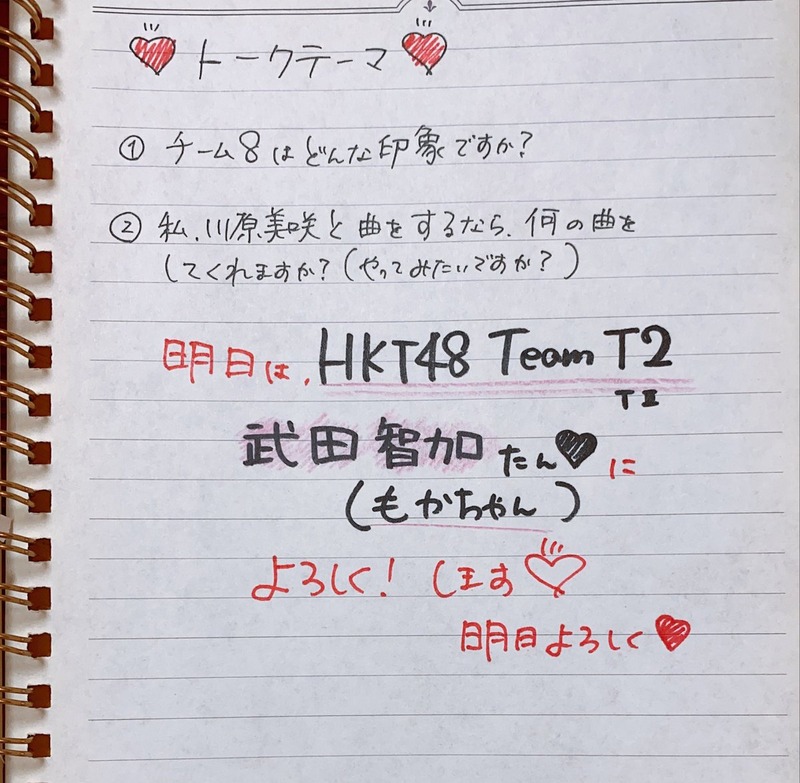 ♥ トークテーマ ♥
① チーム8はどんな印象ですか?
② 私、川原美咲と曲をするなら、何の曲を
してくれますか?(やってみたいですか?)
明日は、HKT48 Team T2
TⅡ
武田智加たん♥に
(もかちゃん)
よろしく! します♡
明日よろしく♥